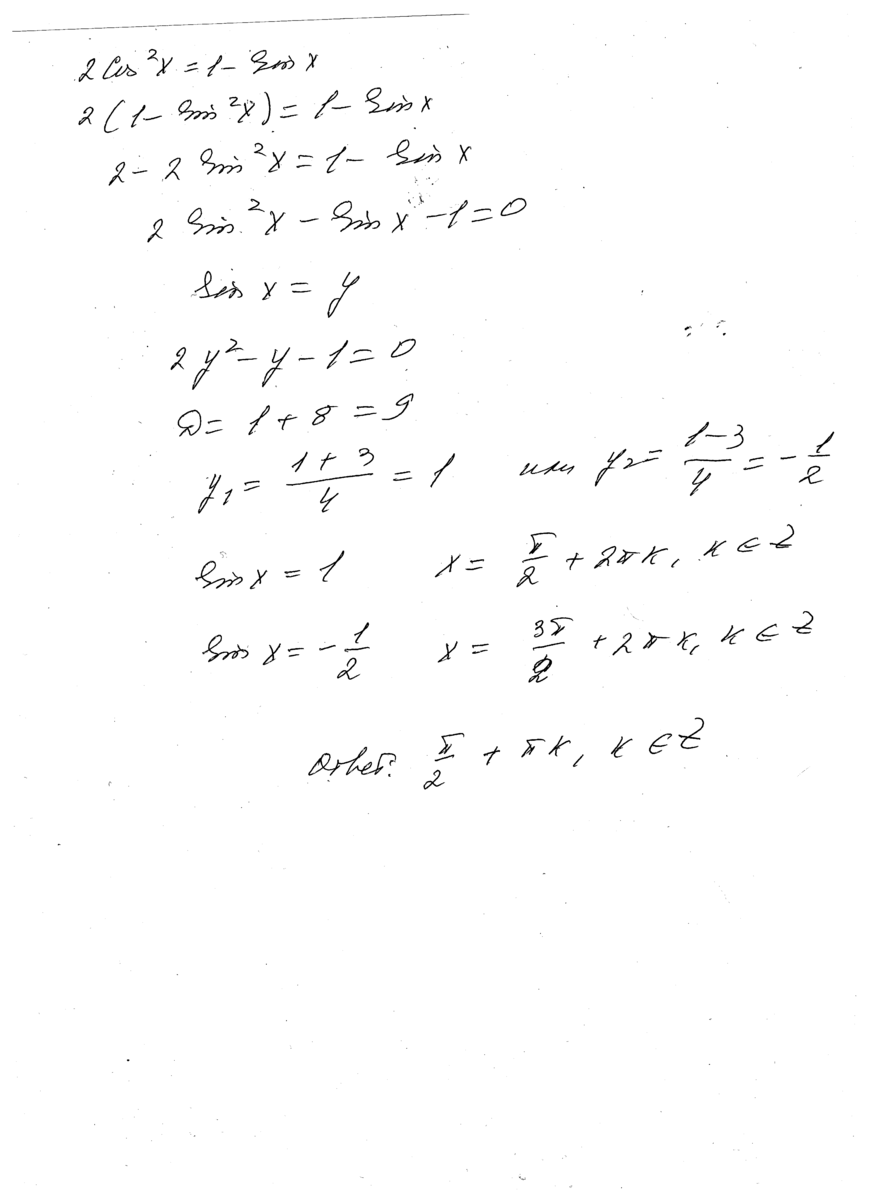 2 cos²x = 1 - sin x
2(1 - sin²x) = 1 - sin x
2 - 2 sin²x = 1 - sin x
2 sin²x - sin x - 1 = 0
sin x = y
2y² - y - 1 = 0
D = 1 + 8 = 9
y₁ = (1 + 3)/4 = 1 или y₂ = (1 - 3)/4 = -1/2
sin x = 1 x = π/2 + 2πk, k ∈ Z
sin x = -1/2 x = 3π/2 + 2πk, k ∈ Z
Ответ: π/2 + πk, k ∈ Z